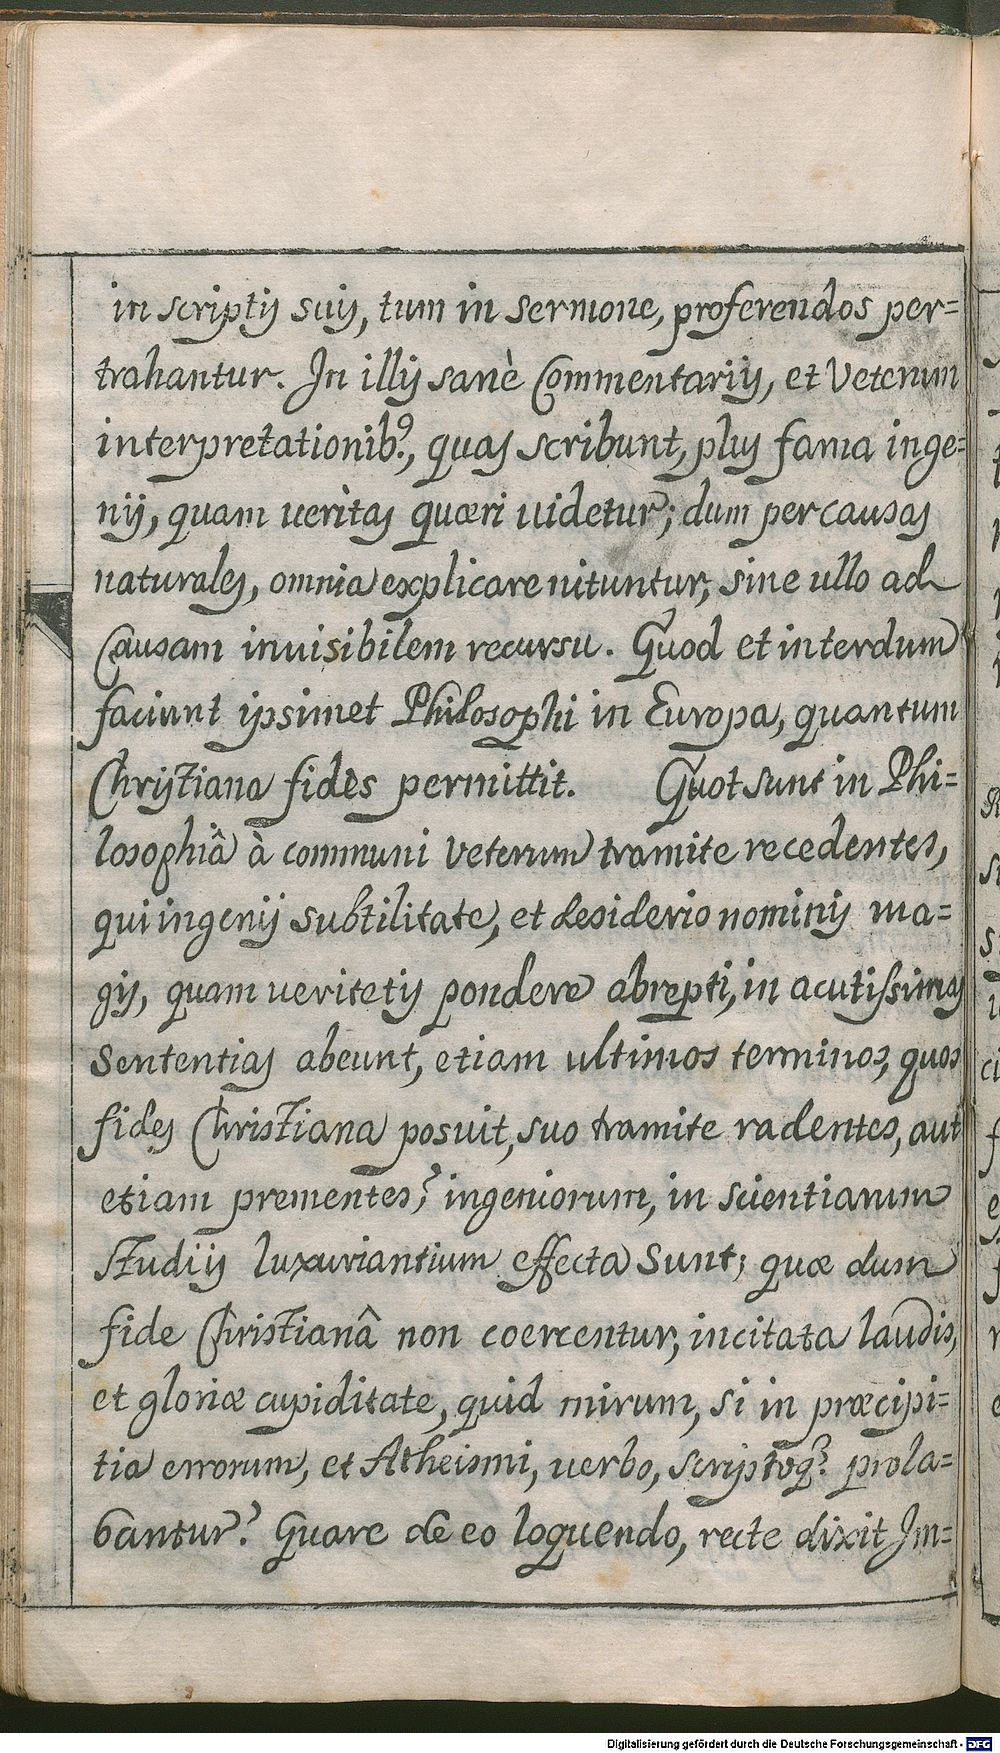 in scriptis suis, tum in sermone, proferendos per=
trahantur. In illis sanè Commentariis, et Veterum
interpretationib9, quas scribunt, plus fama inge=
nij, quam veritas quæri videtur; dum per causas
naturales, omnia explicare nituntur, sine ullo ad
Causam inuisibilem recursu. Quod et interdum
faciunt ipsimet Philosophi in Europa, quantum
Christiana fides permittit. Quot sunt in Phi=
losophiâ à communi Veterum tramite recedentes,
qui ingenij subtilitate, et desiderio nominis ma=
gis, quam veritetis pondere abrepti, in acutissimas
Sententias abeunt, etiam ultimos terminos, quos
fides Christiana posuit, suo tramite radentes, aut
etiam prementes? ingeniorum, in scientiarum
studiis luxuriantium effecta sunt; quæ dum
fide Christianâ non coercentur, incitata laudis,
et gloriæ cupiditate, quid mirum, si in præcipi=
tia errorum, et Atheismi, verbo, scriptoq? prola=
bantur? Quare de eo loquendo, recte dixit Im=
Digitalisierung gefördert durch die Deutsche Forschungsgemeinschaft - DFG